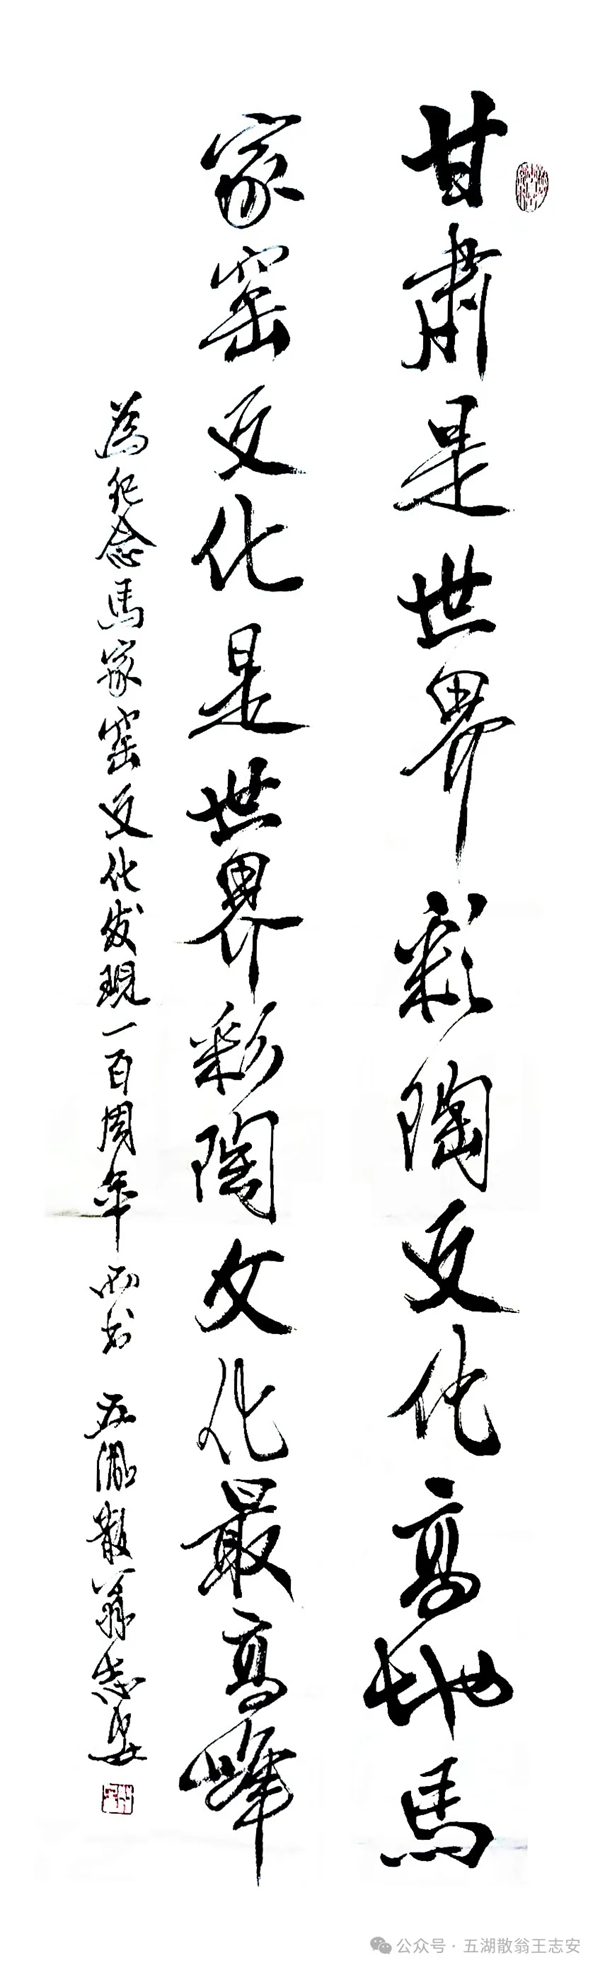 甘肅是世界彩陶文化高地馬
家窑文化是世界彩陶文化最高峰
為纪念馬家窑文化发現一百周年而书 五湖散翁志安
公众号·五湖散翁王志安